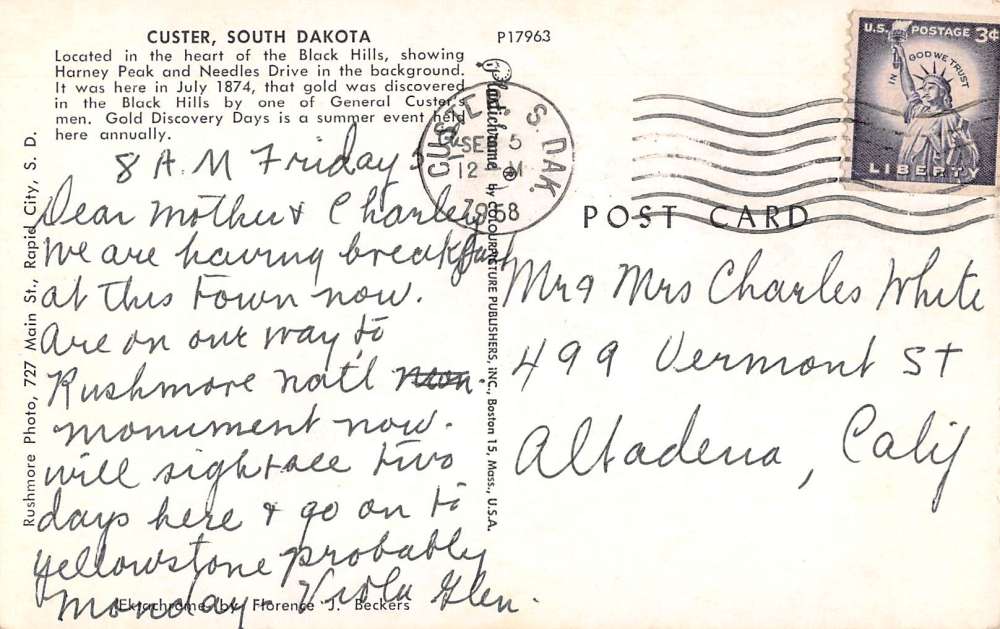 CUSTER, SOUTH DAKOTA
Located in the heart of the Black Hills, showing
Harney Peak and Needles Drive in the background.
It was here in July 1874, that gold was discovered
in the Black Hills by one of General Custer's
men. Gold Discovery Days is a summer event held
here annually.
P17963
8 A.M Friday
Dear Mother & Charley
We are having breakfast
at this town now.
Are on our way to
Rushmore nat'l
monument now.
will sightsee two
days here & go on to
yellowstone probably
monday - Viola Glen.
Ektachrome by Florence J. Beckers
Rushmore Photo, 727 Main St., Rapid City, S. D.
Plastichrome by COLOURPICTURE PUBLISHERS, INC., Boston 15, Mass., U.S.A.
CUSTER S. DAK.
SEP 5
12 M
1958
U.S. POSTAGE 3¢
IN GOD WE TRUST
LIBERTY
POST CARD
Mr & Mrs Charles White
499 Vermont St
Altadena, Calif